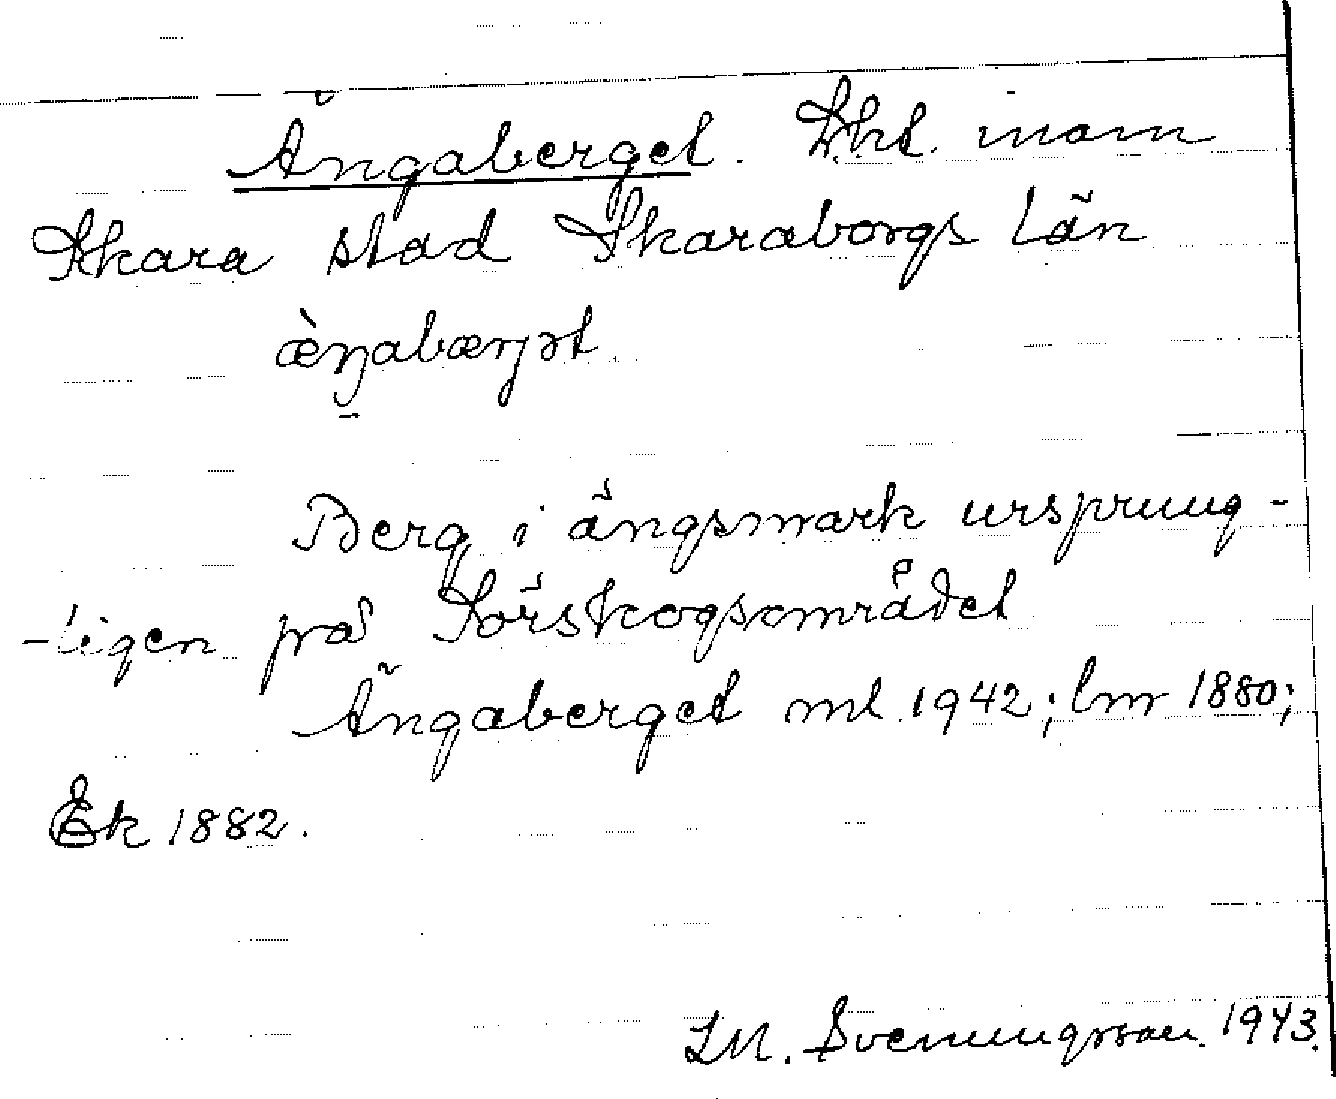 Ängaberget. Lht. inom
Skara stad Skaraborgs län
æ̀ŋabærjət
Berg i ängsmark ursprung-
-ligen på Sörskogsområdet
Ängaberget ml. 1942; lm 1880;
Ek 1882.
Svenungsson. 1943.